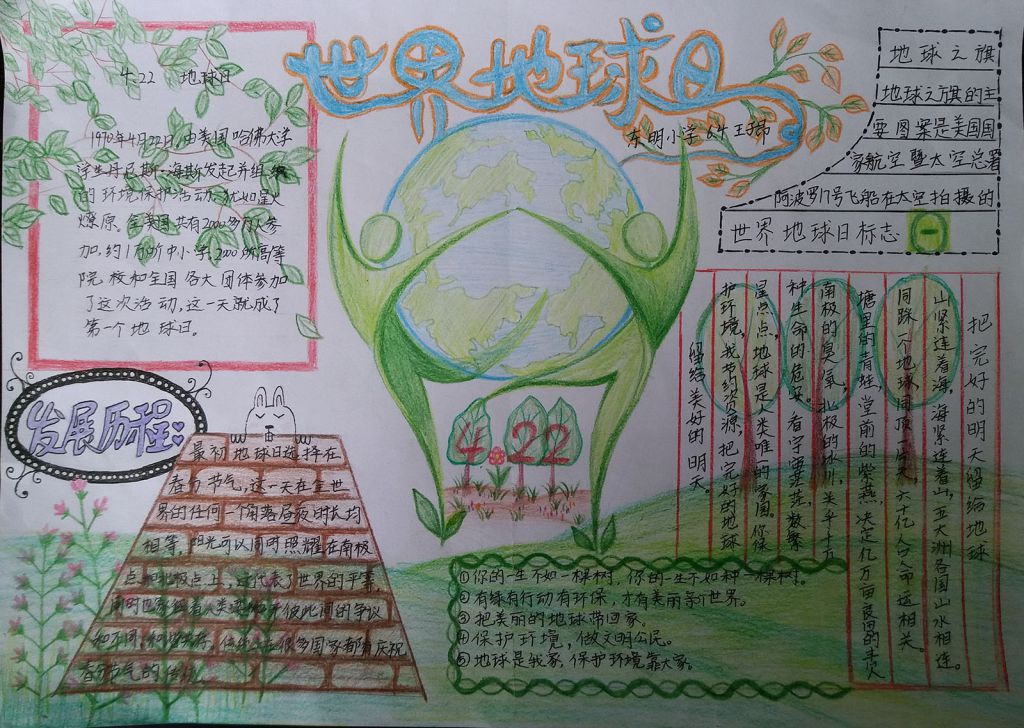 世界地球日
东明小学
4.22 地球日
1970年4月22日,由美国哈佛大学
学生丹尼斯·海斯发起并组织
的环境保护活动犹如星火
燎原。全美国共有2000多万人参
加,约1万所中小学,2000所高等
院校和全国各大团体参加
了这次活动,这一天就成了
第一个地球日。
地球之旗
地球之旗的主
要图案是美国国
家航空暨太空总署
阿波罗17号飞船在太空拍摄的
世界地球日标志
发展历程
最初地球日选择在
春分节气,这一天在全世
界的任何一个角落昼夜时长均
相等,阳光可以同时照耀在南极
点和北极点上,这代表了世界的平等,
同时也象征着人类要抛开彼此间的争议
和不同,和谐共存,
很多国家都有庆祝
春分节气的传统
4 22
把完好的明天留给地球
山紧连着海,海紧连着山,五大洲各国山水相连。
同踩一个地球,同顶一片天,六十亿人口命运相关。
塘里的青蛙,堂前的紫燕,决定亿万亩良田的丰欠
南极的臭氧,北极的冰川,
种生命的危安。看宇宙茫茫,数繁
星点点,地球是人类唯一的家园。你保
护环境,我节约资源,把完好的地球
留给美好的明天。
①你的一生不如一棵树,你的一生不如种一棵树。
②有球有行动有环保,才有美丽等于世界。
③把美丽的地球带回家。
④保护环境,做文明公民。
⑤地球是我家,保护环境靠大家。